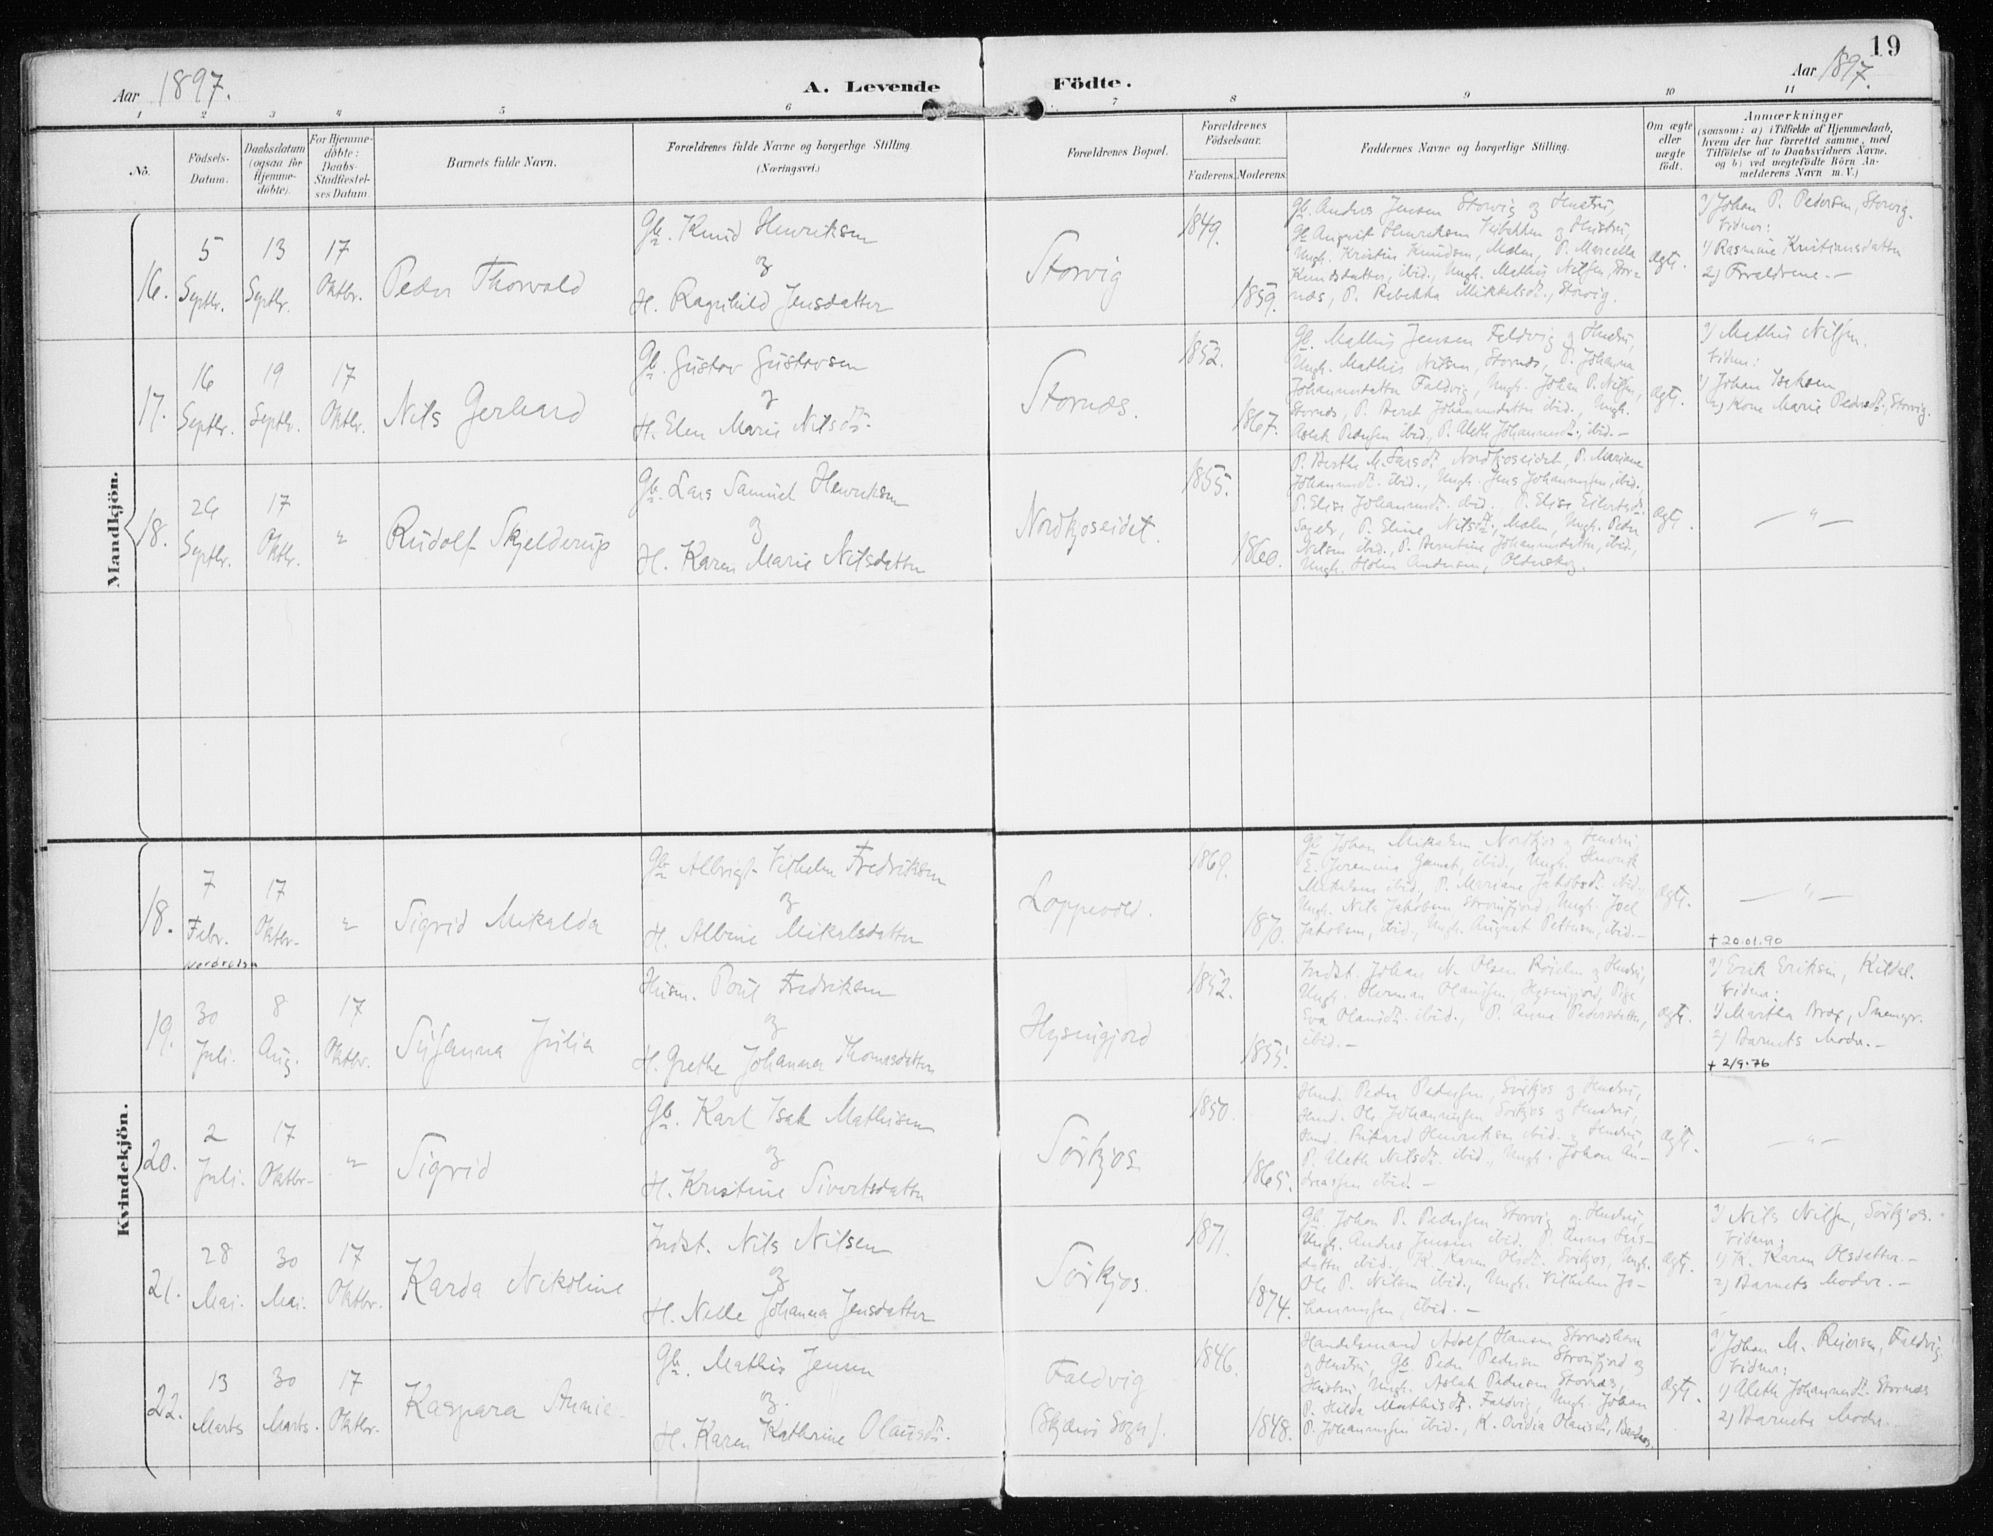 19
Aar 1897.
A. Levende Födte.
Aar 1897.
1 2 3 4 5 6 7 8 9 10 11
No.
Födsels-Datum.
Daabsdatum (ogsaa for Hjemme-döbte).
For Hjemme-döbte: Daabs-Stadfæstel-ses Datum.
Barnets fulde Navn.
Forældrenes fulde Navne og borgerlige Stilling (Næringsvei.)
Forældrenes Bopæl.
Forældrenes Födselsaar.
Faderens. Moderens.
Faddernes Navne og borgerlige Stilling.
Om ægte eller uægte födt.
Anmærkninger
(saasom: a) i Tilfælde af Hjemmedaab,
hvem der har forrettet samme, med
Tilföielse af to Daabsvidners Navne,
og b) ved uægtefödte Börn An-
melderens Navn m. V.)
Mandkjön.
16.
5 Septbr.
13 Septbr.
17 Oktbr.
Peder Thorvald
Gb. Knud Henriksen
og
H. Ragnhild Jensdatter
Storvig
1849.
1859.
Gb. Andres Jensen Storvig og Hustru,
Gb. August Henriksen Veibakken og Hustru,
Ungk. Kristin Knudsen, Malen, P. Marcella
Knudsdatter, ibid., Ungk. Mathis Nilsen, Stor-
næs, P. Rebekka Mikkelsdt., Storvig.
Ægte.
a) Johan P. Pedersen, Storvig.
Vidner:
1) Rasmine Kristiansdatter
2) Forældrene. -
17.
16 Septbr.
19 Septbr.
17 Oktbr.
Nils Gerhard
Gb. Gustav Gustavsen
og
H. Elen Marie Nilsdt.
Stornæs.
1852.
1867.
Gb. Mathis Jensen Faldvig og Hustru,
Ungk. Mathis Nilsen, Stornæs, P. Johanna
Johannesdatter Faldvig, Ungk. Johan P. Nilsen,
Stornæs, P. Berit Johannesdatter ibid., Ungk.
Aslak Pedersen ibid., P. Aleth Johannesdt., ibid. -
Ægte.
a) Mathis Nilsen.
Vidner:
1) Johan Isaksen
2) Kone Marie Pedersdt., Storvig.
18.
26 Septbr.
17 Oktbr.
"
Rudolf Skjelderup
Gb. Lars Samuel Henriksen
og
H. Karen Marie Nilsdatter
Nordkjoseidet.
1855.
1860.
P. Berthe M. Larsdt. Nordkjoseidet, P. Mariane
Johannesdt. ibid., Ungk. Jens Johannesen, ibid.,
P. Elise Johannesdt. ibid., P. Elise Eilertsdt.
P. Eline Nilsdt., Malen, Ungk. Peder
Nilsen ibid., P. Berntine Johannesdatter, ibid.,
Ungk. Holm Andersen, Olderskog.
Ægte.
- " -
Kvindekjön.
18.
7 Febr.
Nordreisa
17 Oktbr.
"
Sigrid Mekalda
Gb. Albrigt Vilhelm Fredriksen
og
H. Albine Mikalsdatter
Loppevold.
1869.
1870.
Gb. Johan Mikalsen Nordkjos og Hustru,
E. Jeremina ibid., Ungk. Henrik
Mikalsen ibid., P. Mariane Jakobsdt. ibid.
Ungk. Nils Jakobsen Storfjord, Ungk. Joel
Jakobsen, ibid., Ungk. August Pettersen, ibid. -
Ægte.
- " -
+ 20.01.90
19.
30 Juli.
8 Aug.
17 Oktbr.
Susanna Julia
Husm. Poul Fredriksen
og
H. Grethe Johanna Thomasdatter
Hysingjord
1852.
1855.
Indst. Johan N. Olsen og Hustru,
Ungk. Herman Olaussen, Hysingjord, Pige
Eva Olausdt. ibid., P. Anna Pedersdatter,
ibid. -
Ægte.
a) Erik Eriksen, Kitdal.
Vidner:
1) Martha
2) Barnets Moder. -
+ 2/9-76
20.
2 Juli.
17 Oktbr.
"
Sigrid
Gb. Karl Isak Mathisen
og
H. Kristine Sivertsdatter
Sörkjos
1850.
1865.
Husm. Peder Pedersen, Sörkjos og Hustru,
Husm. Ole Johannesen Sörkjos og Hustru,
Husm. Rikard Henriksen ibid. og Hustru,
P. Aleth Nilsdt. ibid., Ungk. Johan An-
dreassen ibid. -
Ægte.
- " -
21.
28 Mai.
30 Mai.
17 Oktbr.
Karda Nikoline
Indst. Nils Nilsen
og
H. Nelle Johanna Jensdatter
Sörkjos.
1871.
1874.
Gb. Johan P. Pedersen Storvig og Hustru,
Ungk. Andres Jensen ibid., P. Anna Lars-
datter ibid., K. Karen Olsdt. Sörkjos, Ungk.
Ole P. Nilsen ibid., Ungk. Vilhelm Jo-
hannesen, ibid. -
Ægte.
a) Nils Nilsen, Sörkjos.
Vidner:
1) K. Karen Olsdatter. -
2) Barnets Moder. -
22.
13 Marts
30 Marts.
17 Oktbr.
Kaspara Annie
Gb. Mathis Jensen
og
H. Karen Kathrine Olausdt.
Faldvig
(Skjervö Sogn).
1846.
1848.
Handelsmand Adolf Hansen Stornæshavn
og Hustru, Gb. Peder Pedersen Storfjord og
Hustru, Ungk. Aslak Pedersen Stornæs,
P. Hilda Mathisdt. Faldvig, Ungk. Johan
P. Johannesen ibid., K. Ovidia Olausdt.,
Ægte.
a) Johan M. Reiersen, Faldvig.
Vidner:
1) Aleth Johannesdt. Stornæs
2) Barnets Moder.